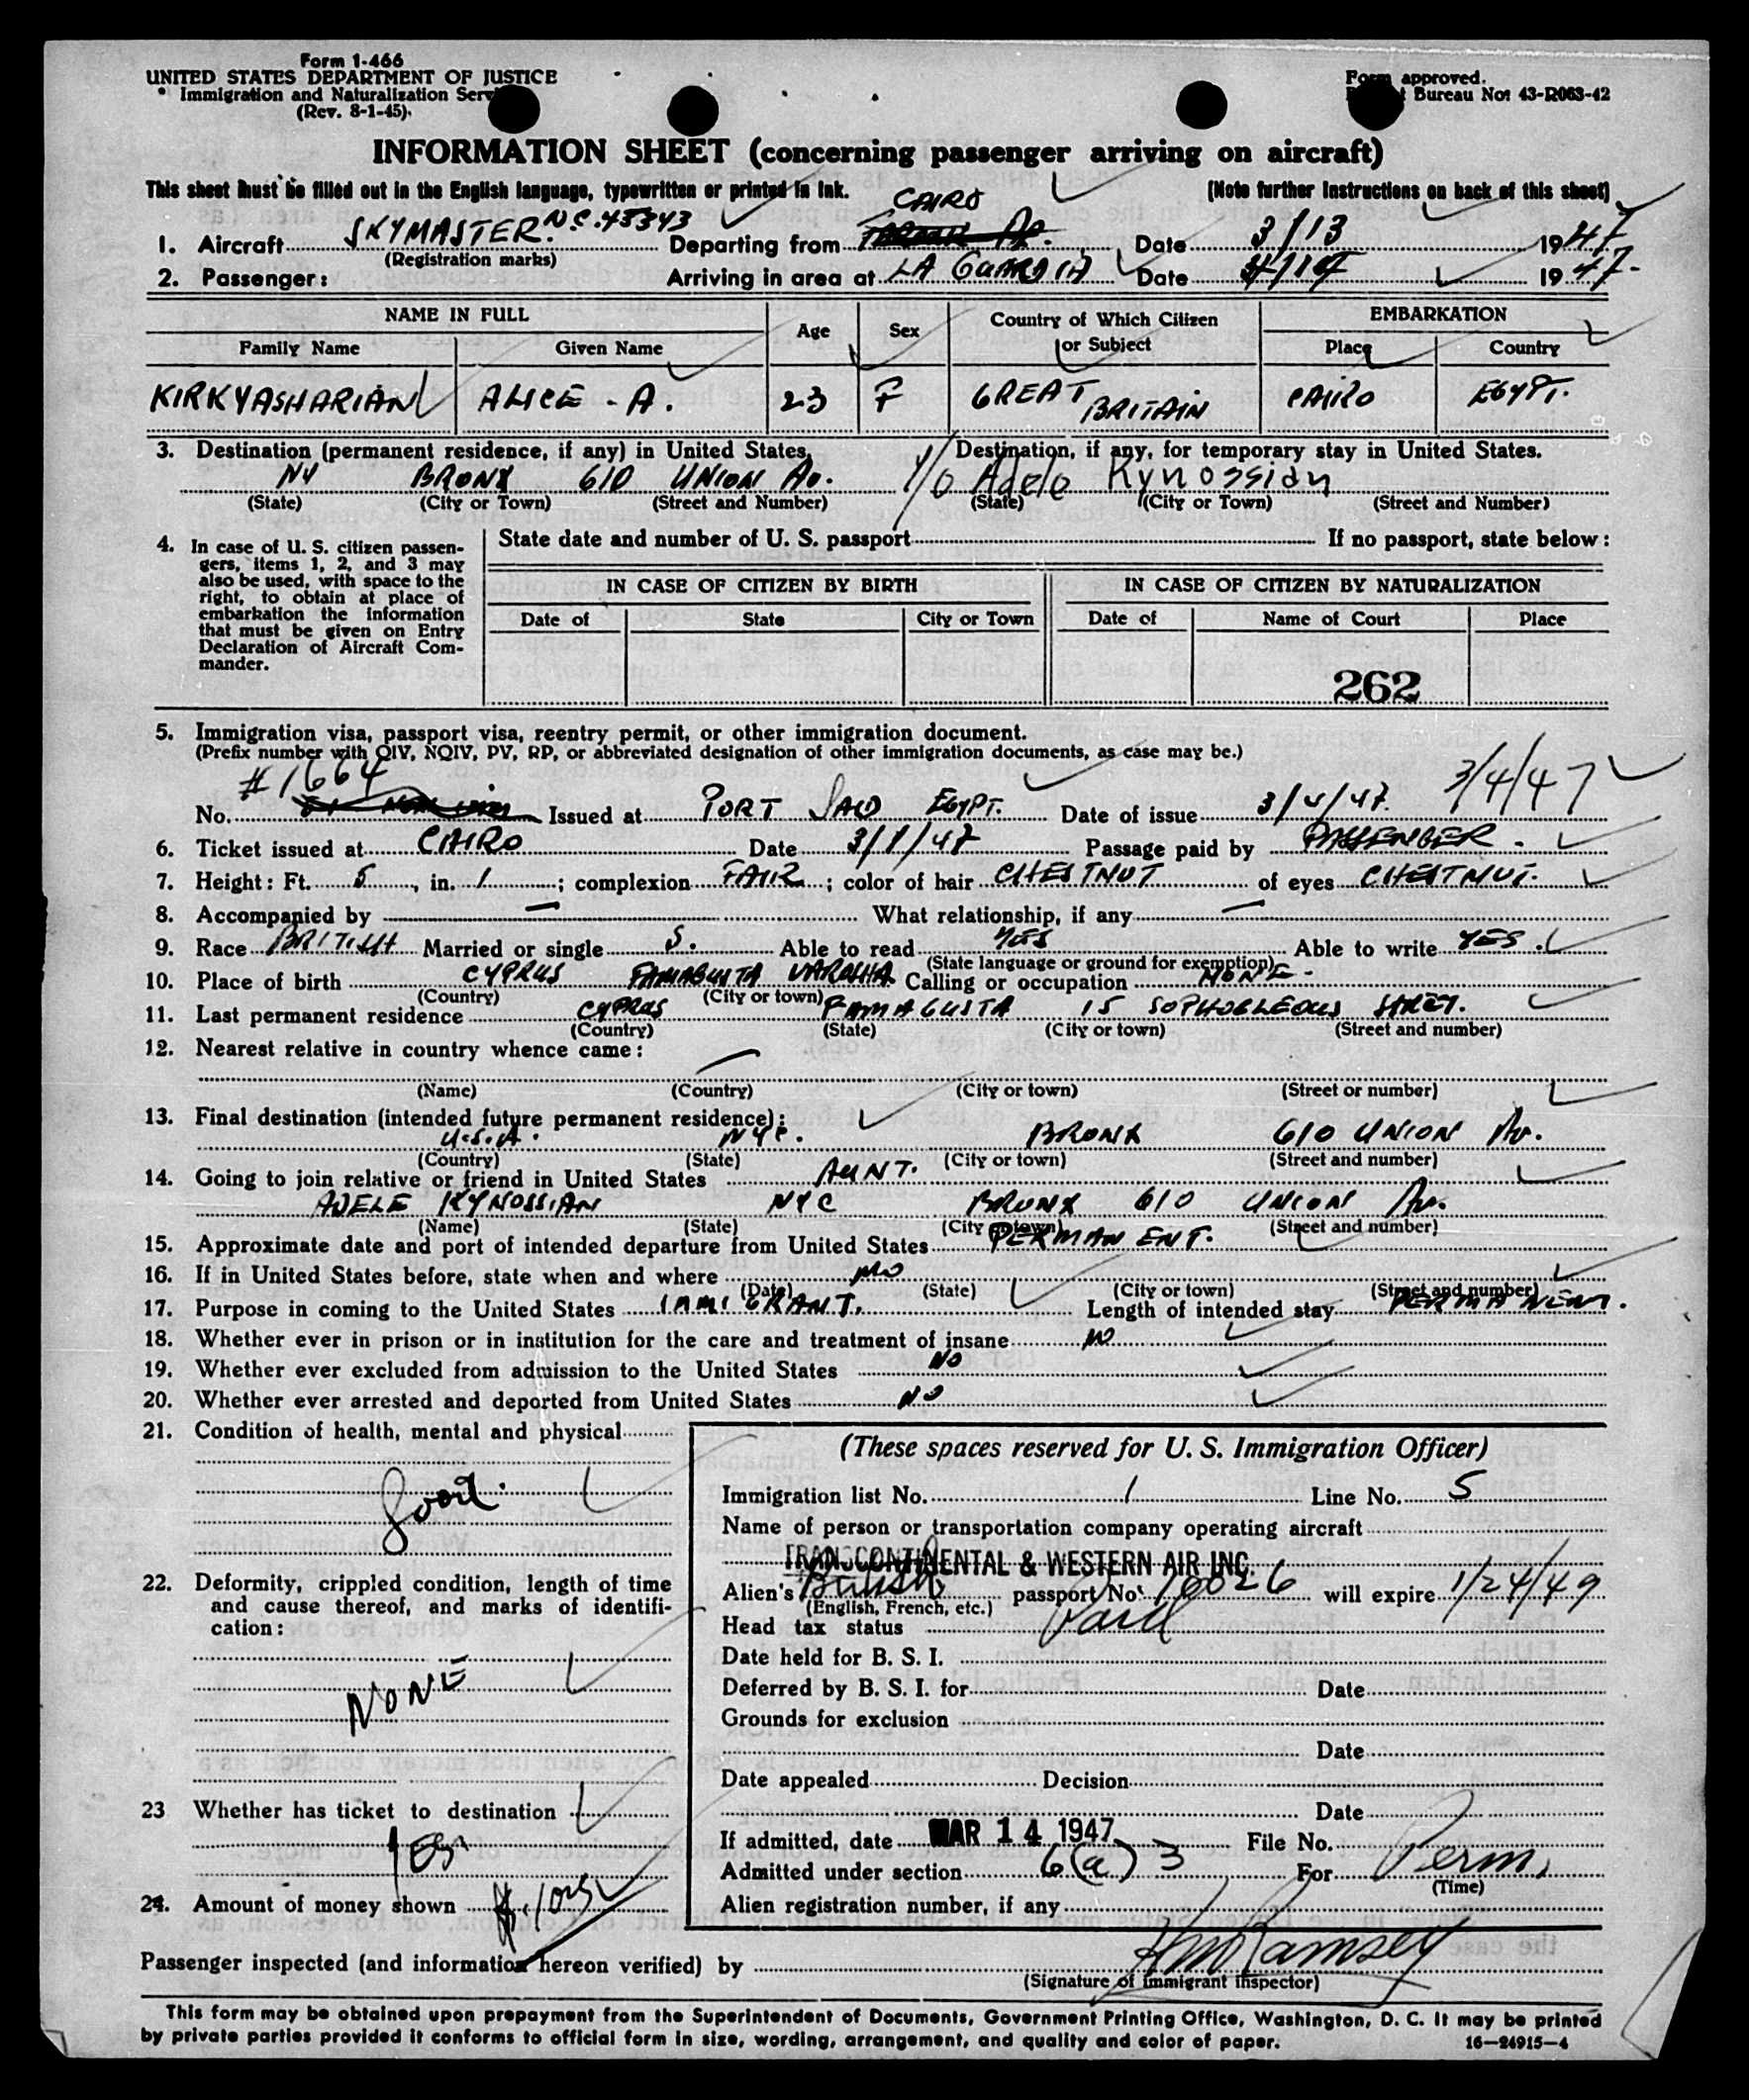 Form 1-466
UNITED STATES DEPARTMENT OF JUSTICE
Immigration and Naturalization
(Rev. 8-1-45).
Form approved.
Bureau No: 43-R063-42
INFORMATION SHEET (concerning passenger arriving on aircraft)
This sheet must be filled out in the English language, typewritten or printed in ink. (Note further instructions on back of this sheet)
CAIRO
1. Aircraft SKYMASTER. N.C. 45343 Departing from Date 3/13 1947
(Registration marks)
2. Passenger: Arriving in area at LA GUARDIA Date 1947.
NAME IN FULL Age Sex Country of Which Citizen or Subject EMBARKATION
Family Name Given Name Place Country
KIRKYASHARIAN ALICE - A. 23 F GREAT BRITAIN CAIRO EGYPT.
3. Destination (permanent residence, if any) in United States. Destination, if any, for temporary stay in United States.
NY BRONX 610 UNION Av. c/o Adele Kynossian
(State) (City or Town) (Street and Number) (State) (City or Town) (Street and Number)
4. In case of U. S. citizen passen-
gers, items 1, 2, and 3 may
also be used, with space to the
right, to obtain at place of
embarkation the information
that must be given on Entry
Declaration of Aircraft Com-
mander.
State date and number of U. S. passport If no passport, state below:
IN CASE OF CITIZEN BY BIRTH IN CASE OF CITIZEN BY NATURALIZATION
Date of State City or Town Date of Name of Court Place
262
5. Immigration visa, passport visa, reentry permit, or other immigration document.
(Prefix number with QIV, NQIV, PV, RP, or abbreviated designation of other immigration documents, as case may be.)
#1664 3/4/47
No. Issued at PORT SAID EGYPT. Date of issue 3/4/47.
6. Ticket issued at CAIRO Date 3/1/47 Passage paid by PASSENGER.
7. Height: Ft. 5, in. 1; complexion FAIR; color of hair CHESTNUT of eyes CHESTNUT.
8. Accompanied by — What relationship, if any —
9. Race BRITISH Married or single S. Able to read YES Able to write YES.
(State language or ground for exemption)
10. Place of birth CYPRUS FAMAGUSTA VAROSHA. Calling or occupation NONE.
(Country) (City or town)
11. Last permanent residence CYPRUS FAMAGUSTA 15 SOPHOCLEOUS STREET.
(Country) (State) (City or town) (Street and number)
12. Nearest relative in country whence came: —
(Name) (Country) (City or town) (Street or number)
13. Final destination (intended future permanent residence):
U.S.A. NYC. BRONX 610 UNION Av.
(Country) (State) (City or town) (Street and number)
14. Going to join relative or friend in United States AUNT.
ADELE KYNOSSIAN NYC BRONX 610 UNION Av.
(Name) (State) (City or town) (Street and number)
15. Approximate date and port of intended departure from United States PERMANENT.
16. If in United States before, state when and where NO
(Date) (State) (City or town) (Street and number)
17. Purpose in coming to the United States IMMIGRANT. Length of intended stay PERMANENT.
18. Whether ever in prison or in institution for the care and treatment of insane NO
19. Whether ever excluded from admission to the United States NO
20. Whether ever arrested and deported from United States NO
21. Condition of health, mental and physical
Good.
22. Deformity, crippled condition, length of time
and cause thereof, and marks of identifi-
cation:
NONE
23 Whether has ticket to destination
Yes
24. Amount of money shown
(These spaces reserved for U. S. Immigration Officer)
Immigration list No. 1 Line No. 5
Name of person or transportation company operating aircraft
TRANSCONTINENTAL & WESTERN AIR INC.
Alien's British passport No. 16026 will expire 1/24/49
(English, French, etc.)
Head tax status Paid
Date held for B. S. I.
Deferred by B. S. I. for Date
Grounds for exclusion
Date
Date appealed Decision
Date
If admitted, date MAR 14 1947 File No.
Admitted under section 6(a) 3 For Perm.
(Time)
Alien registration number, if any
Passenger inspected (and information hereon verified) by Ramsey
(Signature of immigrant inspector)
This form may be obtained upon prepayment from the Superintendent of Documents, Government Printing Office, Washington, D. C. It may be printed
by private parties provided it conforms to official form in size, wording, arrangement, and quality and color of paper. 16—24915-4